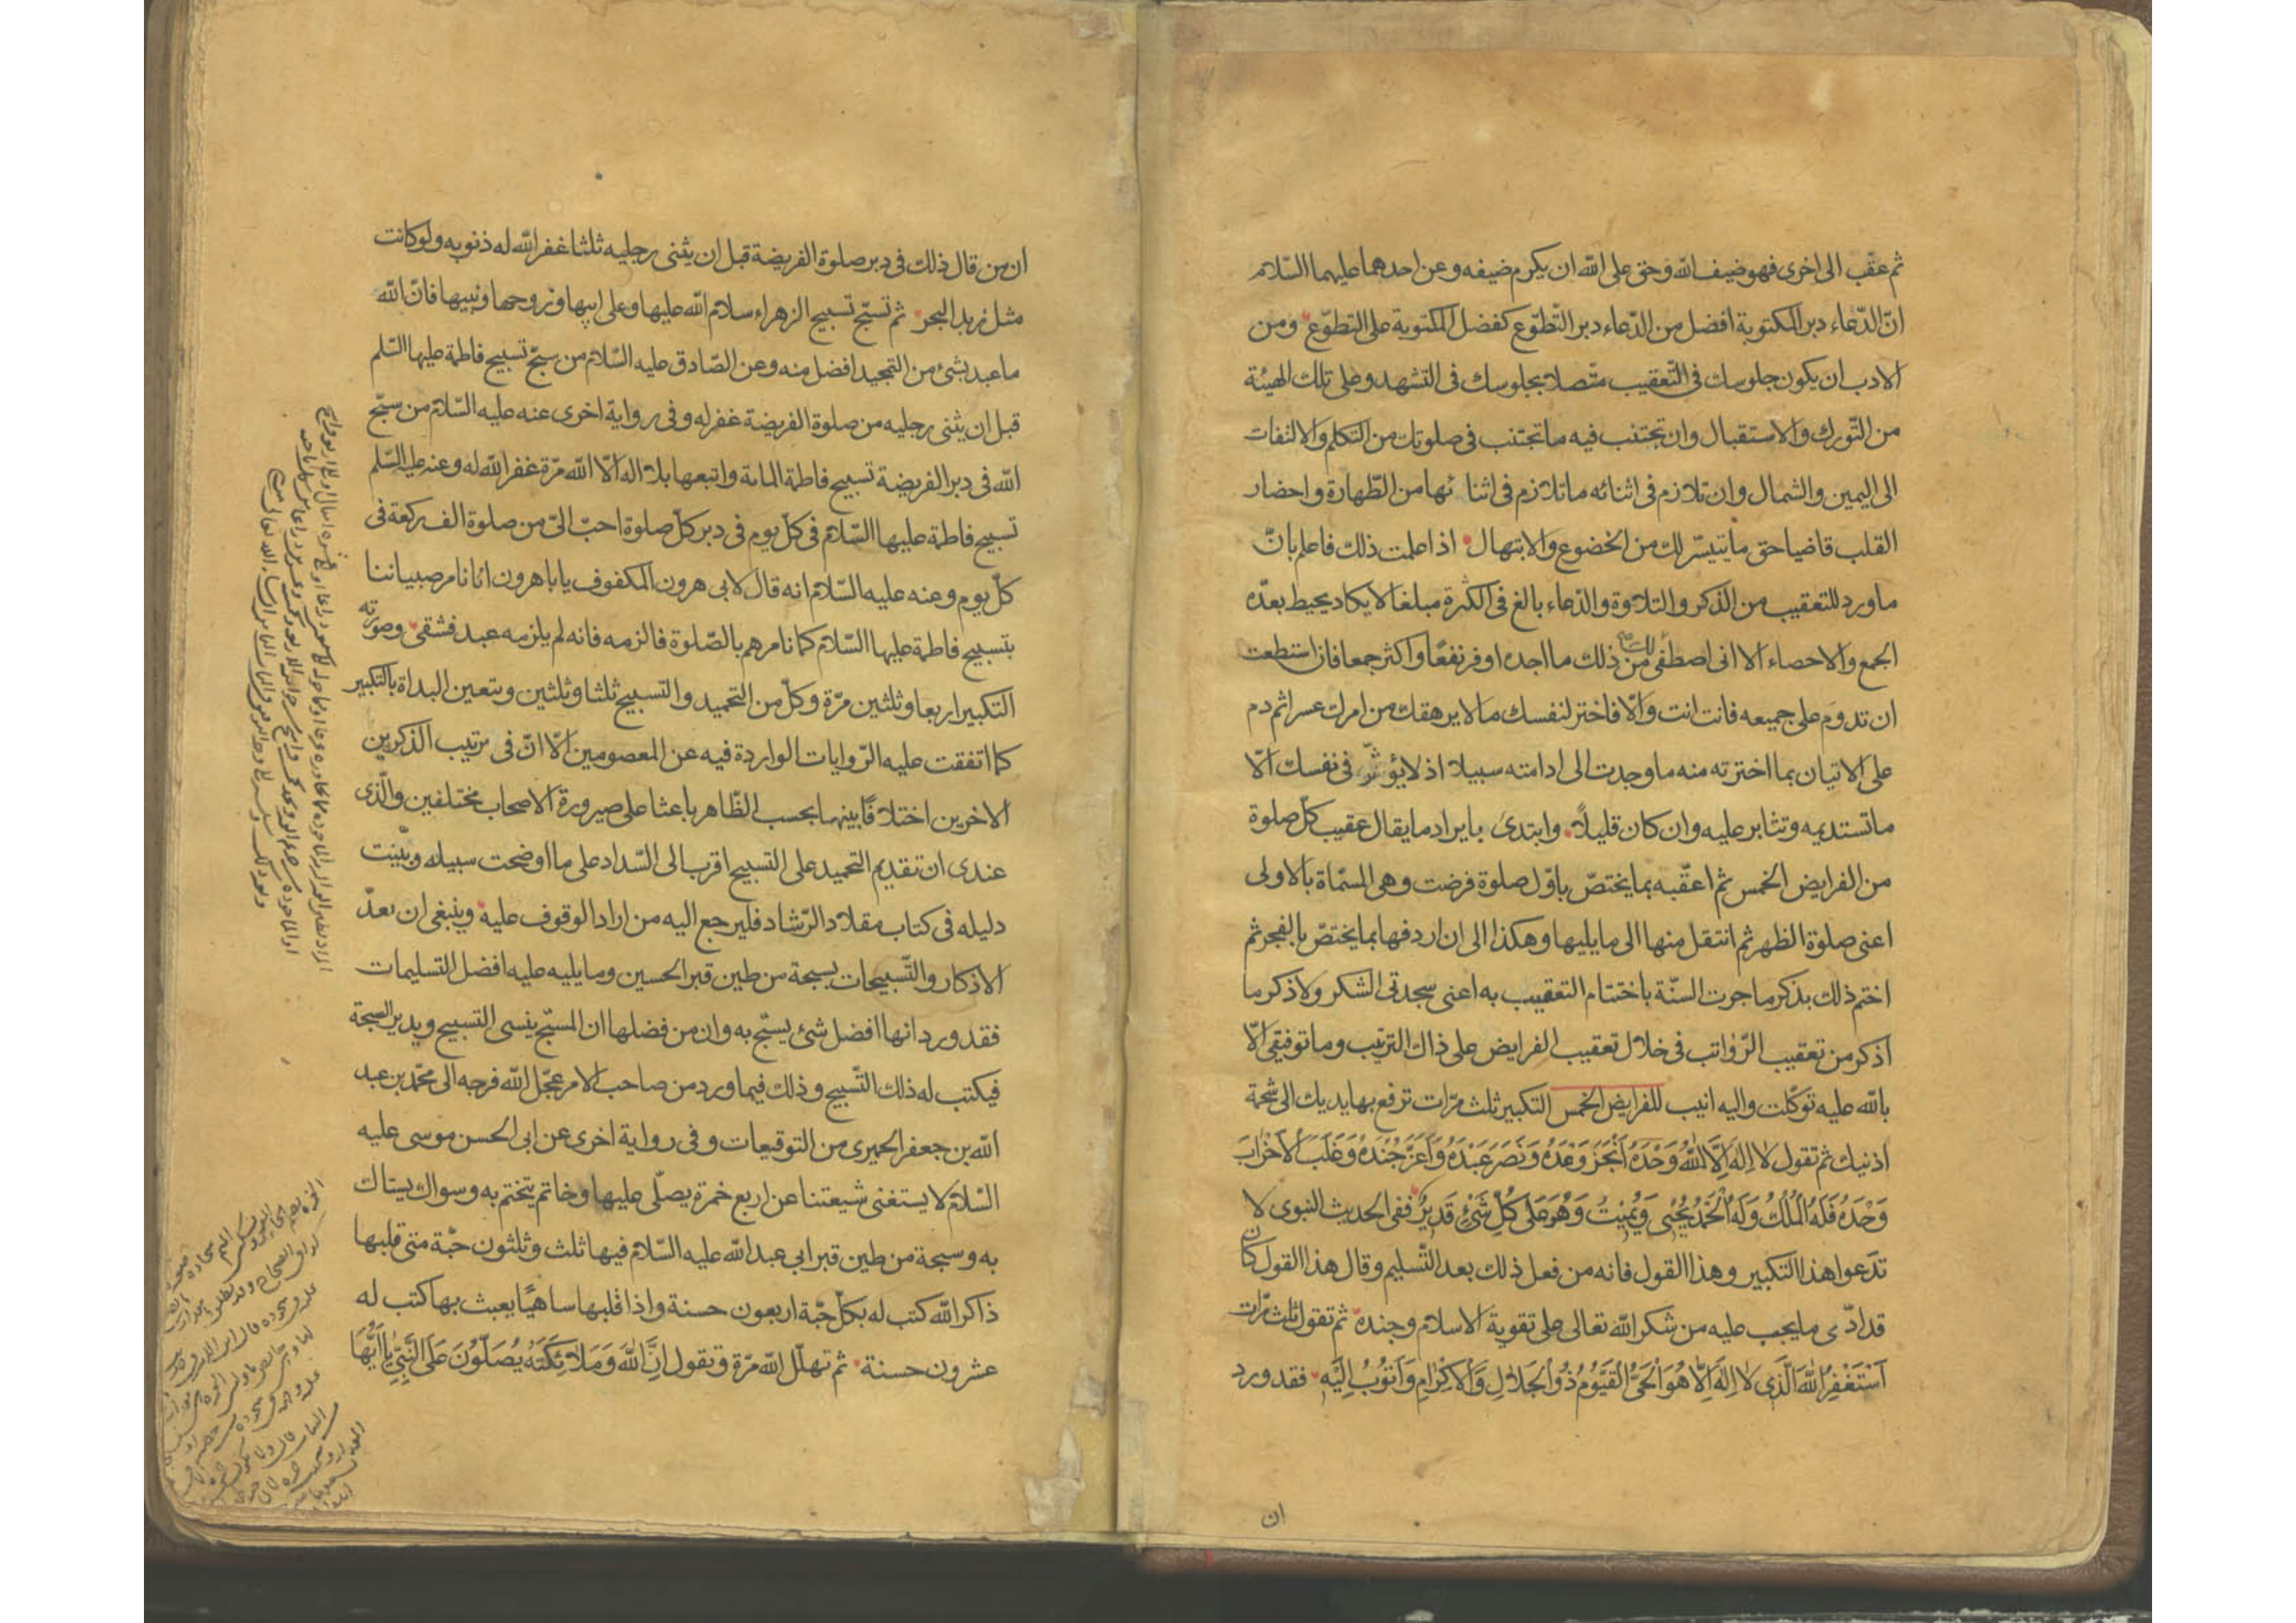 ثم عقّب الى اخرى فهو ضيف الله وحق على الله ان يكرم ضيفه وعن احدهما عليهما السّلام
انّ الدّعاء دبر المكتوبة افضل من الدّعاء دبر التّطوّع كفضل المكتوبة على التطوّع ومن
الادب ان يكون جلوسك فى التّعقيب متّصلا بجلوسك فى التشهد وعلى تلك الهيئة
من التّورك والاستقبال وان تجتنب فيه ما تجتنب فى صلوتك من التكلم والالتفات
الى اليمين والشمال وان تلازم فى اثنائه ما تلازم فى اثنائها من الطّهارة واحضار
القلب قاضيا حق ما تيسّر لك من الخضوع والابتهال اذا علمت ذلك فاعلم بانّ
ما ورد للتعقيب من الذكر والتلاوة والدّعاء بالغ فى الكثرة مبلغا لا يكاد يحيط بعدّه
الجمع والاحصاء الا انى اصطفى لك من ذلك ما اجده اوفر نفعًا واكثر جمعا فان استطعت
ان تدوم على جميعه فانت انت والّا فاختر لنفسك ما لا يرهقك من امرك عسرا ثم دم
على الاتيان بما اخترته منه ما وجدت الى ادامته سبيلا اذ لا يؤثّر فى نفسك الّا
ما تستديمه وتثابر عليه وان كان قليلًا وابتدى بايراد ما يقال عقيب كلّ صلوة
من الفرايض الخمس ثم اعقّبه بما يختصّ باوّل صلوة فرضت وهى المسمّاة بالاولى
اعنى صلوة الظهر ثم انتقل منها الى ما يليها وهكذا الى ان اردفها بما يختصّ بالفجر ثم
اختم ذلك بذكر ما جرت السنّة باختتام التعقيب به اعنى سجدتى الشكر ولاذكر ما
اذكر من تعقيب الرّواتب فى خلال تعقيب الفرايض على ذاك الترتيب وما توفيقى الّا
بالله عليه توكّلت واليه انيب للفرايض الخمس التكبير ثلث مرّات ترفع بها يديك الى شحمة
اذنيك ثم تقول لَا اِلٰهَ اِلَّا اللّٰهُ وَحْدَهُ اَنْجَزَ وَعْدَهُ وَنَصَرَ عَبْدَهُ وَاَعَزَّ جُنْدَهُ وَغَلَبَ الْاَحْزَابَ
وَحْدَهُ فَلَهُ الْمُلْكُ وَلَهُ الْحَمْدُ يُحْيِى وَيُمِيتُ وَهُوَ عَلَى كُلِّ شَىْءٍ قَدِيرٌ ففى الحديث النبوى لا
تدعوا هذا التكبير وهذا القول فانه من فعل ذلك بعد التّسليم وقال هذا القول كان
قد ادّى ما يجب عليه من شكر الله تعالى على تقوية الاسلام وجنده ثم تقول ثلث مرّات
اَسْتَغْفِرُ اللّٰهَ الَّذِى لَا اِلٰهَ اِلَّا هُوَ الْحَىُّ الْقَيُّومُ ذُو الْجَلَالِ وَالْاِكْرَامِ وَاَتُوبُ اِلَيْهِ فقد ورد
ان
ان من قال ذلك فى دبر صلوة الفريضة قبل ان يثنى رجليه ثلثا غفر الله له ذنوبه ولو كانت
مثل زبد البحر ثم تسبّح تسبيح الزهراء سلام الله عليها وعلى ابيها وزوجها وبنيها فانّ الله
ما عبد بشئ من التمجيد افضل منه وعن الصّادق عليه السّلام من سبّح تسبيح فاطمة عليها السّلم
قبل ان يثنى رجليه من صلوة الفريضة غفر له وفى رواية اخرى عنه عليه السّلام من سبّح
الله فى دبر الفريضة تسبيح فاطمة المائة واتبعها بلا اله الّا الله مرّة غفر الله له وعنه عليه السّلم
تسبيح فاطمة عليها السّلام فى كلّ يوم فى دبر كلّ صلوة احبّ الىّ من صلوة الف ركعة فى
كلّ يوم وعنه عليه السّلام انه قال لابى هرون المكفوف يا با هرون انّا نامر صبياننا
بتسبيح فاطمة عليها السّلام كما نامرهم بالصّلوة فالزمه فانه لم يلزمه عبد فشقى وصورته
التكبير اربعا وثلثين مرّة وكلّ من التحميد والتسبيح ثلثا وثلثين ويتعين البداة بالتكبير
كما اتفقت عليه الرّوايات الواردة فيه عن المعصومين الّا انّ فى ترتيب الذكرين
الاخرين اختلافًا بينها بحسب الظّاهر باعثا على صيرورة الاصحاب مختلفين والّذى
عندى ان تقديم التحميد على التسبيح اقرب الى السّداد على ما اوضحت سبيله وبيّنت
دليله فى كتاب مقلاد الرّشاد فليرجع اليه من اراد الوقوف عليه وينبغى ان تعدّ
الاذكار والتّسبيحات بسبحة من طين قبر الحسين وما يليه عليه افضل التسليمات
فقد ورد انها افضل شئ يسبّح به وان من فضلها ان المسبّح ينسى التسبيح ويدير السبحة
فيكتب له ذلك التّسبيح وذلك فيما ورد من صاحب الامر عجّل الله فرجه الى محمّد بن عبد
الله بن جعفر الحميرى من التوقيعات وفى رواية اخرى عن ابى الحسن موسى عليه
السّلام لا يستغنى شيعتنا عن اربع خمرة يصلّى عليها وخاتم يتختم به وسواك يستاك
به وسبحة من طين قبر ابي عبد الله عليه السّلام فيها ثلث وثلثون حبّة متى قلبها
ذاكر الله كتب له بكلّ حبّة اربعون حسنة واذا قلبها ساهيًا يعبث بها كتب له
عشرون حسنة ثم تهلّل الله مرّة وتقول اِنَّ اللّٰهَ وَمَلَائِكَتَهُ يُصَلُّونَ عَلَى النَّبِىِّ يَا اَيُّهَا